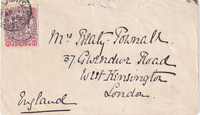 Mrs Realy-Pownall
37 Gwendwr Road
West Kensington
London.
England